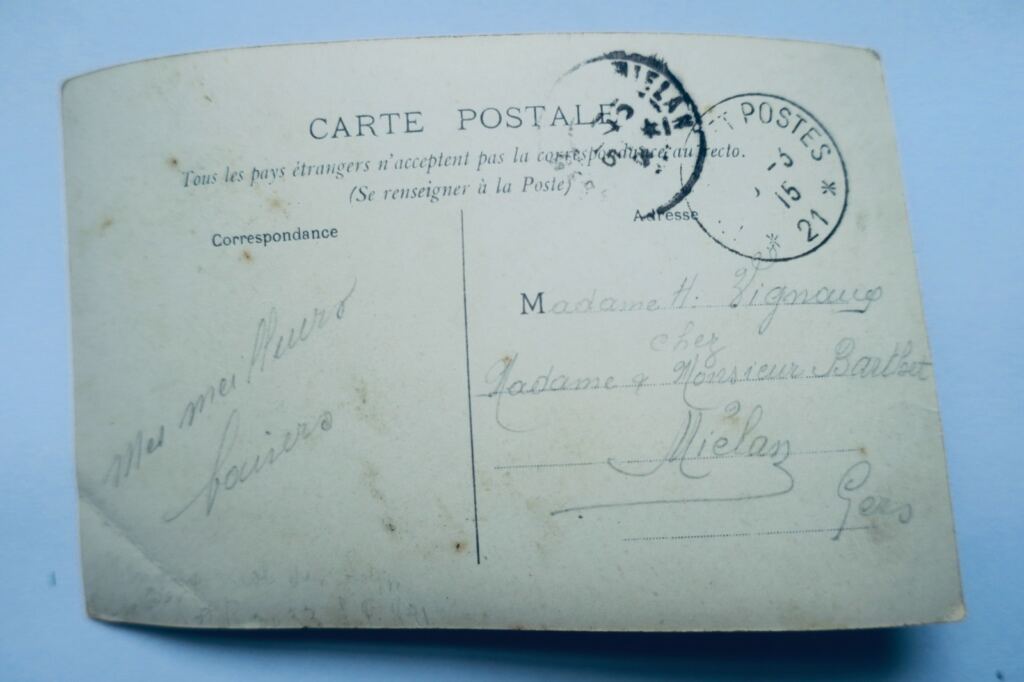 CARTE POSTALE
Tous les pays étrangers n'acceptent pas la correspondance au recto.
(Se renseigner à la Poste)
Correspondance
Adresse
MIELAN
POSTES
15
21 *
Madame H. Vignaux
chez
Madame & Monsieur Barthet
Mielan
Gers
Mes meilleurs
baisers